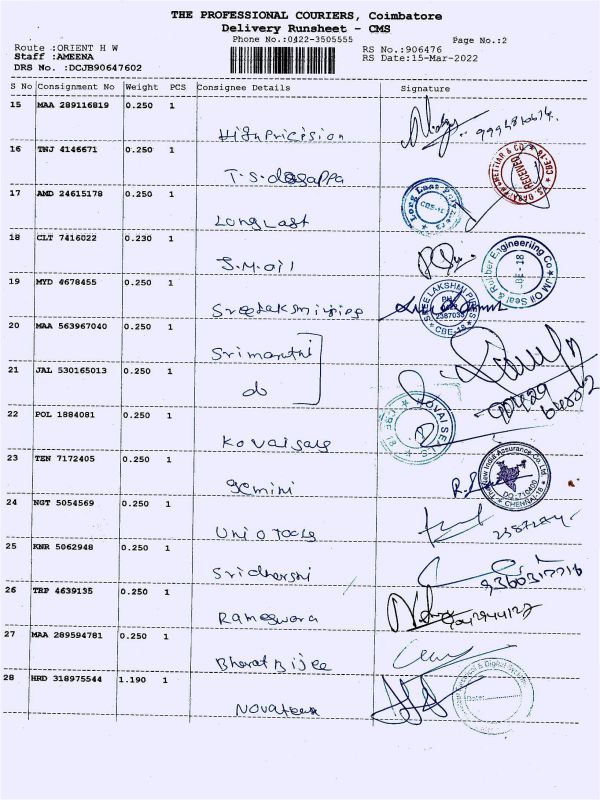 THE PROFESSIONAL COURIERS, Coimbatore
Delivery Runsheet - CMS
Phone No.:0422-3505555
Page No.:2
Route :ORIENT H W
RS No.:906476
Staff :AMEENA
RS Date:15-Mar-2022
DRS No. :DCJB90647602
S No Consignment No Weight PCS Consignee Details Signature
15 MAA 289116819 0.250 1
High precision
16 TNJ 4146671 0.250 1
RECEIVED
CBE-18
17 AMD 24615178 0.250 1
Long Last
18 CLT 7416022 0.230 1
J.M. oil
JM Oil Seal & Rubber Engineering Co
19 MYD 4678455 0.250 1
SREE LAKSHMI
2387038
CBE-18
20 MAA 563967040 0.250 1
21 JAL 530165013 0.250 1
do
22 POL 1884081 0.250 1
KOVAI SE
23 TEN 7172405 0.250 1
Gemini
The New India Assurance Co. Ltd
DO-710400
CHENNAI-18
24 NGT 5054569 0.250 1
Unio Tools
25 KNR 5062948 0.250 1
26 TRP 4639135 0.250 1
Rameswara
27 MAA 289594781 0.250 1
Bharat Bijlee
28 HRD 318975544 1.190 1
& Digital System
Date: